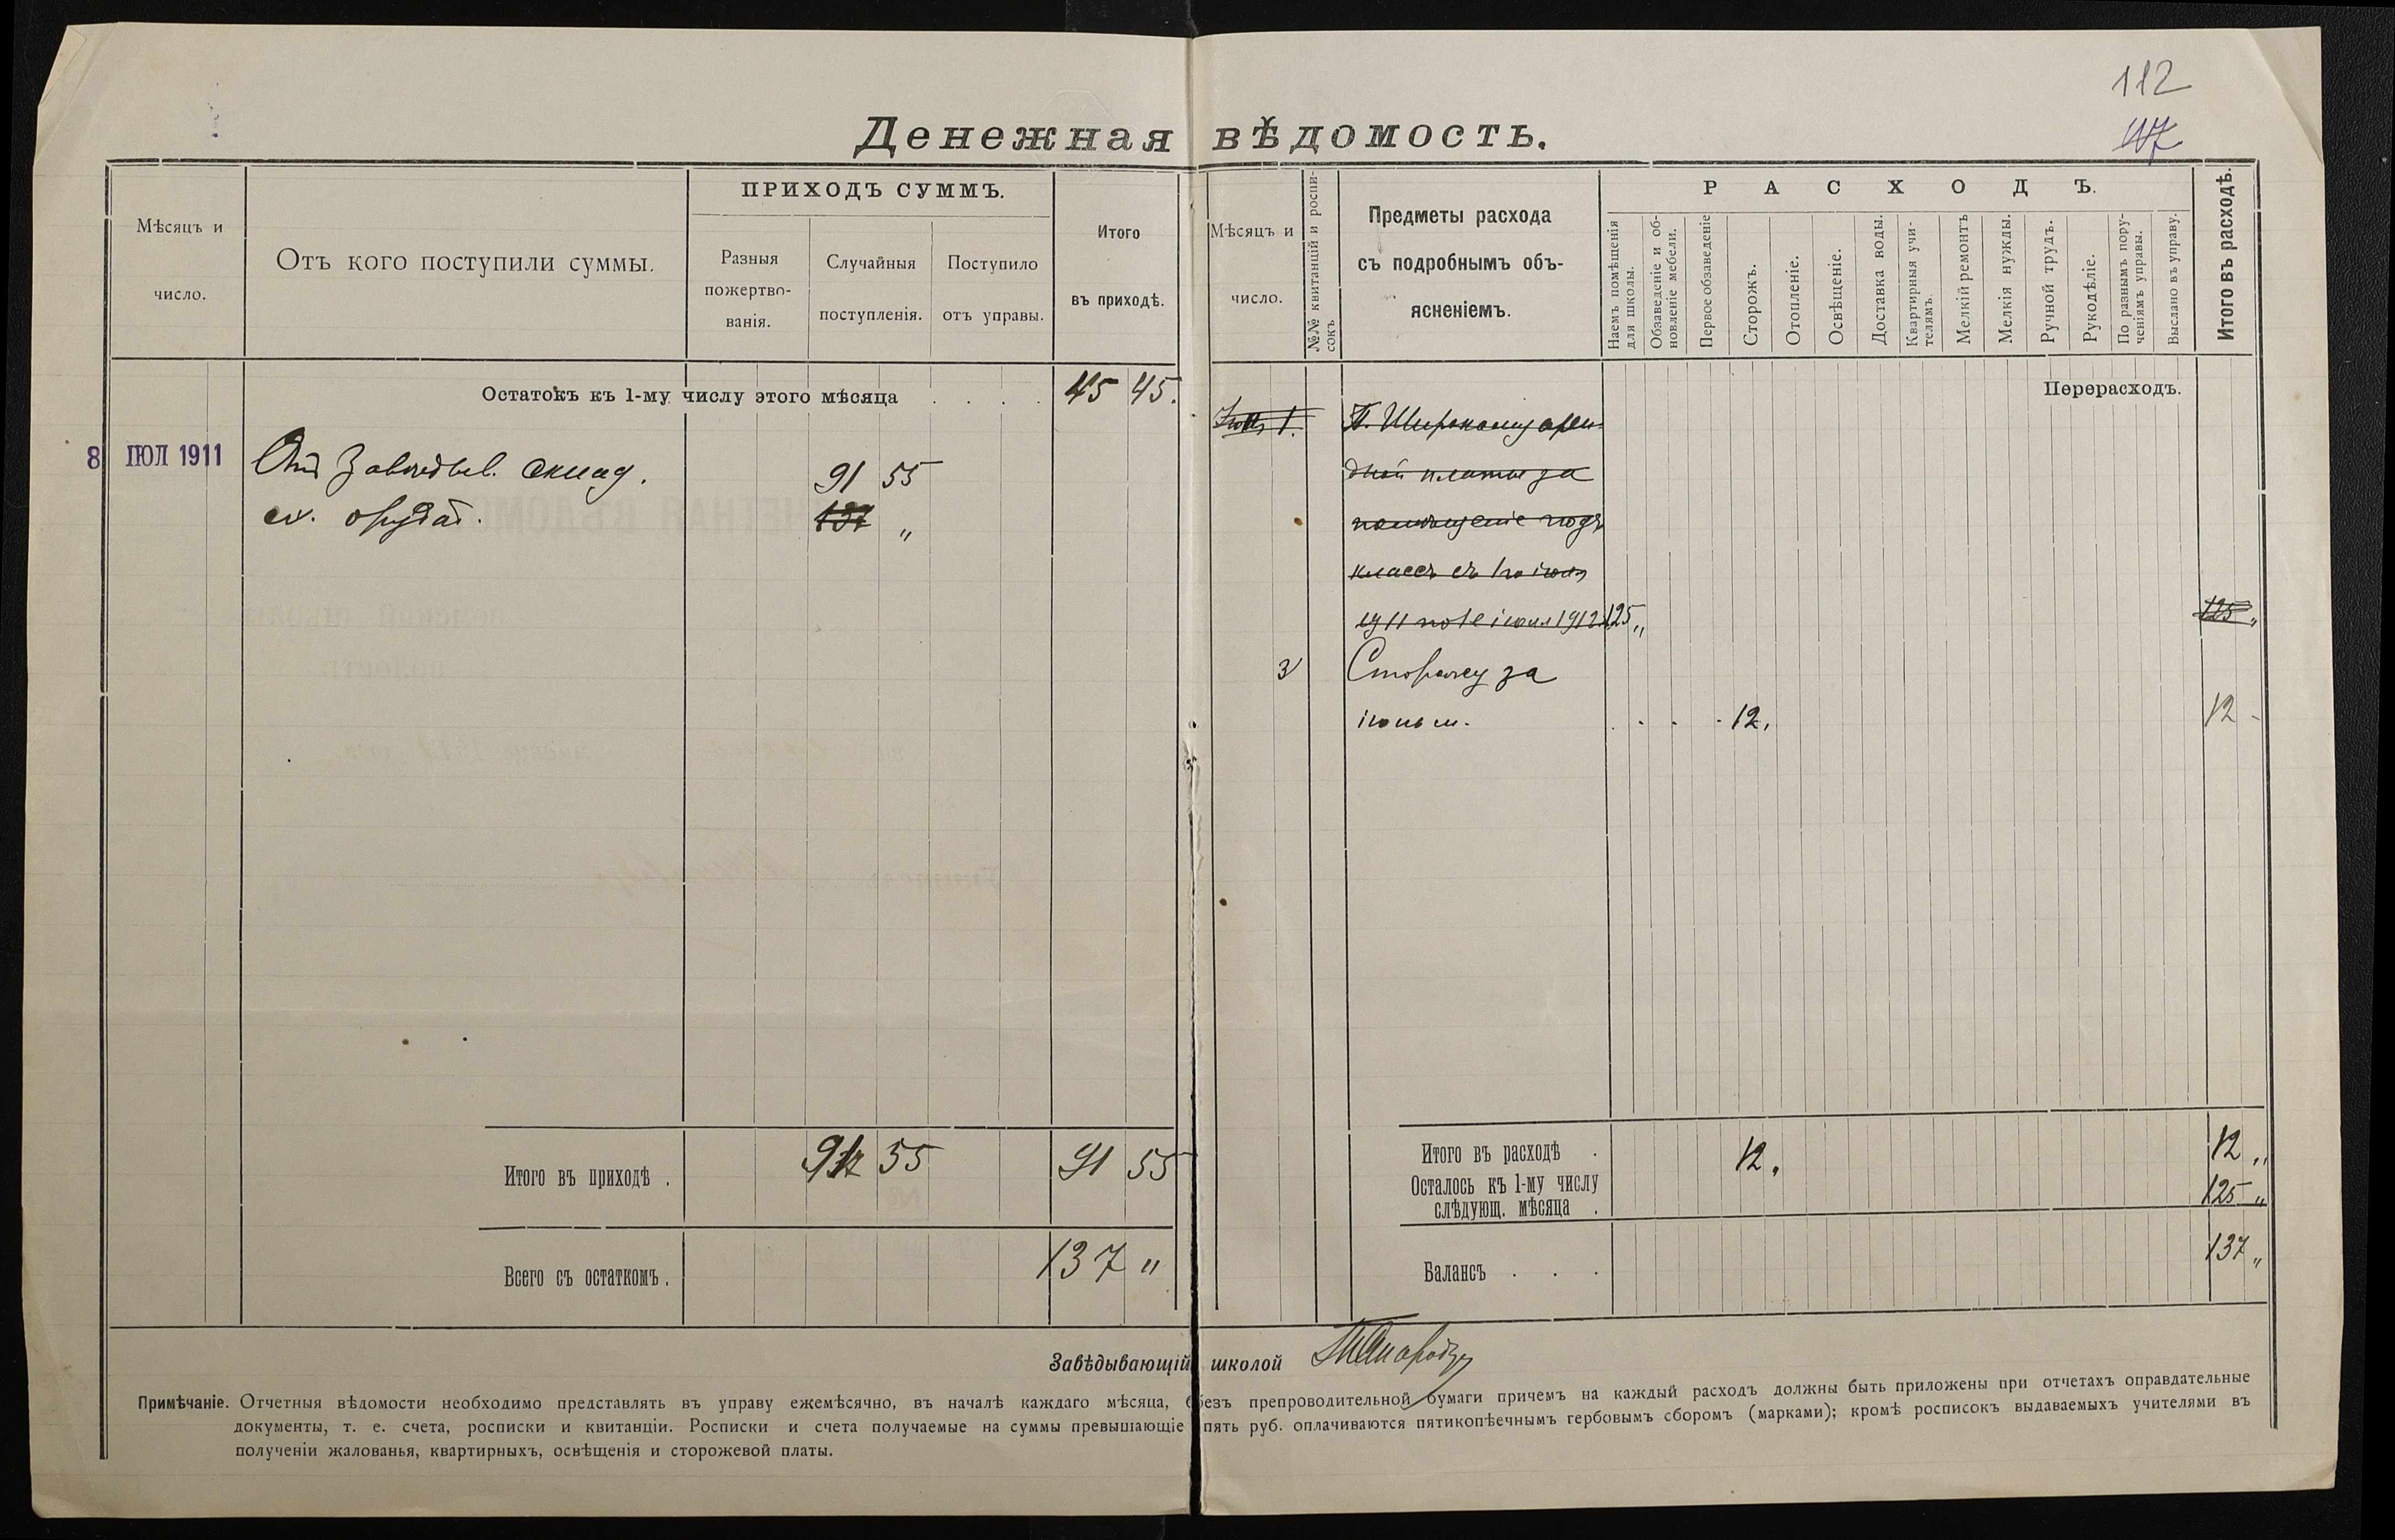 112
Денежная вѣдомость.
Мѣсяцъ и
число.
Отъ кого поступили суммы.
ПРИХОДЪ СУММЪ.
Разныя
пожертво-
ванія.
Случайныя
поступленія.
Поступило
отъ управы.
Итого
въ приходѣ.
Мѣсяцъ и
число.
№№ квитанцій и роспи-
сокъ
Предметы расхода
съ подробнымъ объ-
ясненіемъ.
РАСХОДЪ.
Наемъ помѣщенія
для школы.
Обзаведеніе и об-
новленіе мебели.
Первое обзаведеніе
Сторожъ.
Отопленіе.
Освѣщеніе.
Доставка воды.
Квартирныя учи-
телямъ.
Мелкій ремонтъ
Мелкія нужды.
Ручной трудъ.
Рукодѣліе.
По разнымъ пору-
ченіямъ управы.
Выслано въ управу.
Итого въ расходѣ.
Остатокъ къ 1-му числу этого мѣсяца . . . . 45 45.
Перерасходъ.
8 ІЮЛ 1911
Отъ Завѣдыв. склад. 91 55
с. орудій. 137 „
П. Широкому арен-
дной платы за
помѣщеніе подъ
классъ съ 1го іюля
1911 по 1е іюля 1912 125 „ 125 „
3 Сторожу за
іюнь м. 12. 12 -
Итого въ приходѣ . 91 55 91 55
Всего съ остаткомъ . 137 „
Итого въ расходѣ . 12. 12 „
Осталось къ 1-му числу
слѣдующ. мѣсяца . 125 „
Балансъ . . . 137 „
Завѣдывающій школой
Примѣчаніе. Отчетныя вѣдомости необходимо представлять въ управу ежемѣсячно, въ началѣ каждаго мѣсяца, безъ препроводительной бумаги причемъ на каждый расходъ должны быть приложены при отчетахъ оправдательные
документы, т. е. счета, росписки и квитанціи. Росписки и счета получаемые на суммы превышающіе пять руб. оплачиваются пятикопѣечнымъ гербовымъ сборомъ (марками); кромѣ росписокъ выдаваемыхъ учителями въ
полученіи жалованья, квартирныхъ, освѣщенія и сторожевой платы.